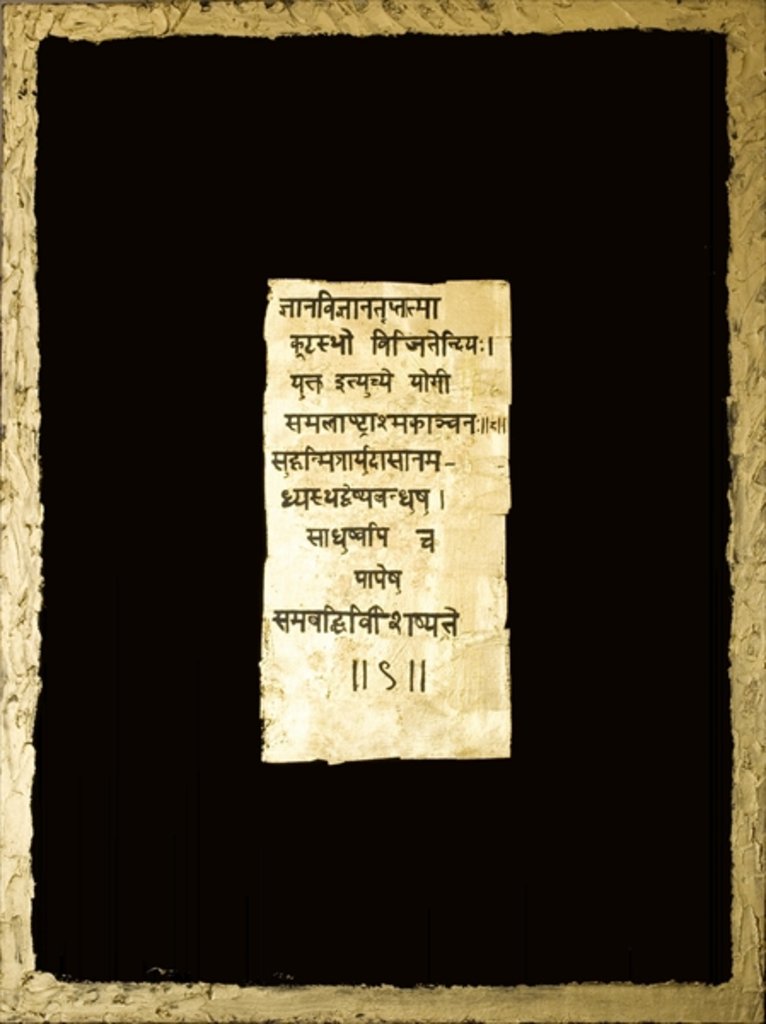 ज्ञानविज्ञानतृप्तत्मा
कूटस्थो विजितेन्दियः।
युक्त इत्युच्ये योगी
समलाष्ट्राश्मकाञ्चनः॥८॥
सुहृन्मित्रार्युदासानम-
ध्यस्थद्वेष्यबन्धुषु।
साधुष्वपि च
पापेषु
समबद्धिर्विशिष्यते
॥९॥